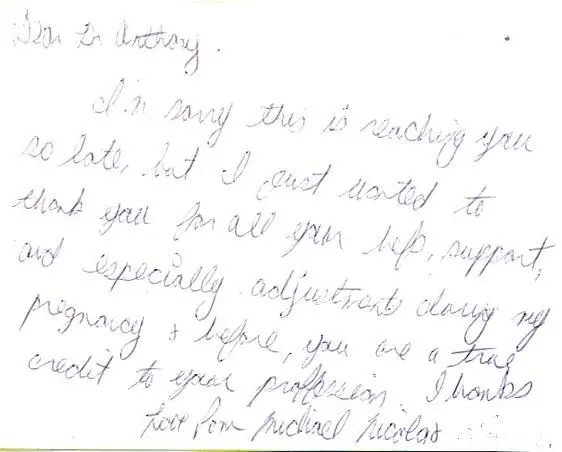 Dear Dr Anthony.
I'm sorry this is reaching you
so late, but I just wanted to
thank you for all your help, support,
and especially adjustments during my
pregnancy & before, you are a true
credit to your profession. Thanks
Love from Michael Nicolas